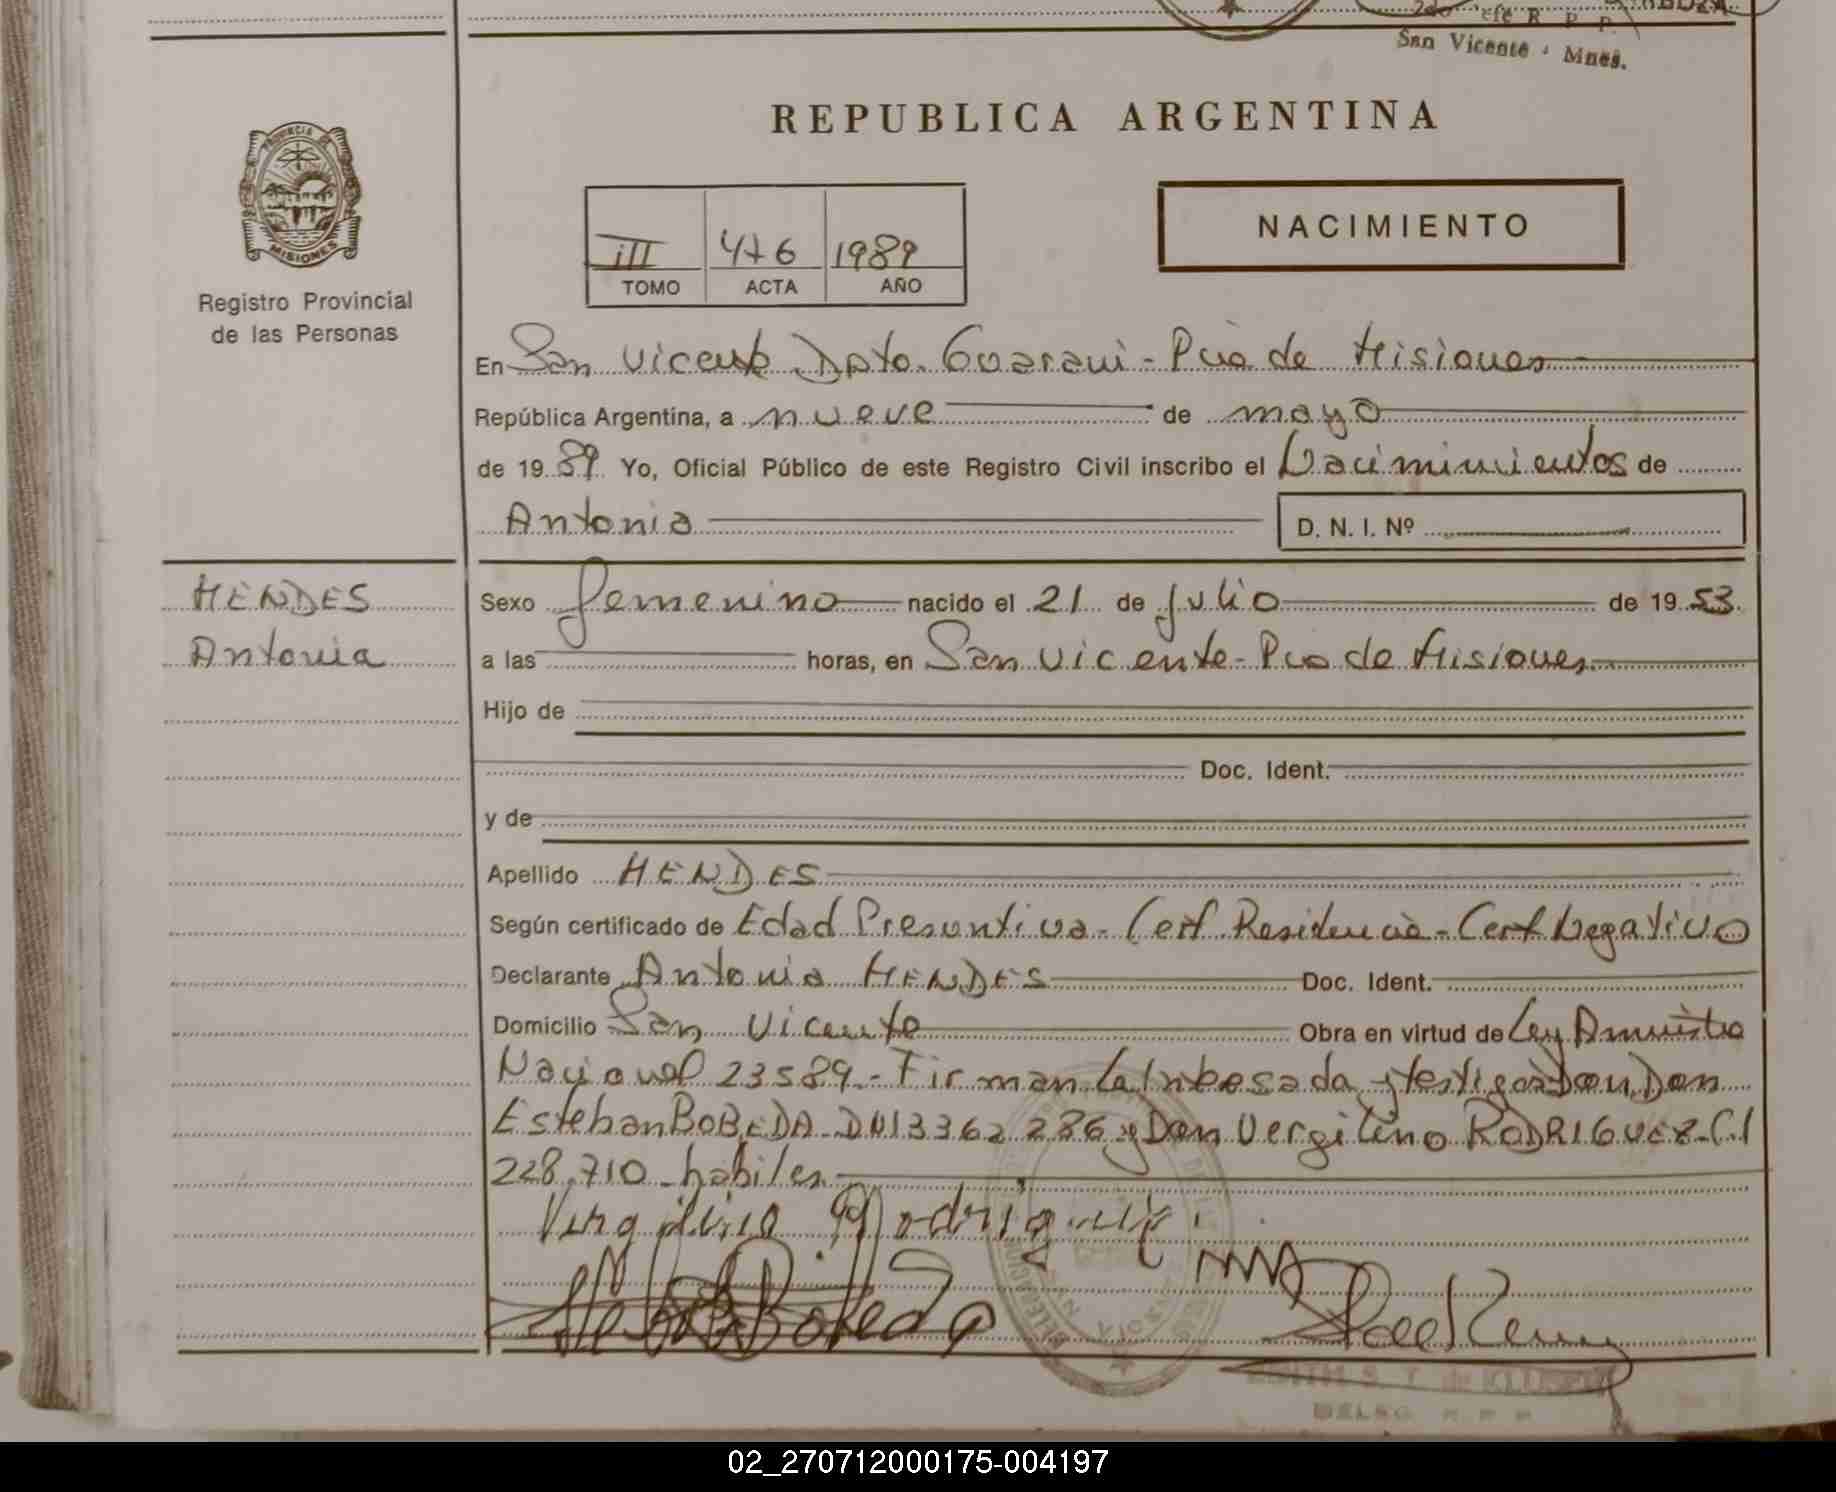 San Vicente - Mnes.
REPUBLICA ARGENTINA
PROVINCIA DE
MISIONES
Registro Provincial
de las Personas
III 476 1989
TOMO ACTA AÑO
NACIMIENTO
En San Vicente Dpto. Guarani - Pcia de Misiones
República Argentina, a nueve de mayo
de 1989 Yo, Oficial Público de este Registro Civil inscribo el Nacimimientos de
Antonia D. N. I. Nº
MENDES
Antonia
Sexo femenino nacido el 21 de julio de 1953.
a las horas, en San Vicente - Pcia de Misiones
Hijo de
Doc. Ident.
y de
Apellido MENDES
Según certificado de Edad Presuntiva - Cert. Residencia - Cert Negativo
Declarante Antonia MENDES Doc. Ident.
Domicilio San Vicente Obra en virtud de Ley Amnistia
Nacional 23589.- Firman La Interesada y testigos Don
Esteban BOBEDA - DNI 3362 286 y Don Vergilino RODRIGUEZ - C.I
228.710 habiles
Virgilino Rodriguez
02_270712000175-004197